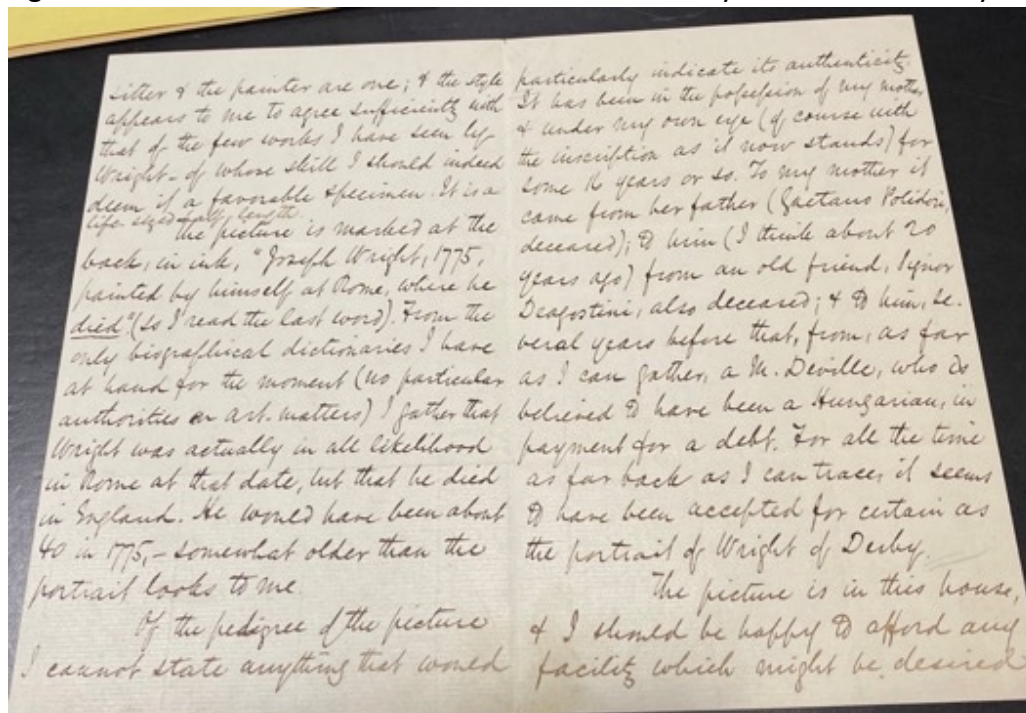 sitter & the painter are one; & the style
appears to me to agree sufficiently with
that of the few works I have seen by
Wright - of whose skill I should indeed
deem it a favorable specimen. It is a
life-sized half-length.
The picture is marked at the
back, in ink, "Joseph Wright, 1775,
painted by himself at Rome, where he
died" (so I read the last word). From the
only biographical dictionaries I have
at hand for the moment (no particular
authorities on art-matters) I gather that
Wright was actually in all likelihood
in Rome at that date, but that he died
in England. He would have been about
40 in 1775, - somewhat older than the
portrait looks to me.
Of the pedigree of the picture
I cannot state anything that would
particularly indicate its authenticity.
It has been in the possession of my mother,
& under my own eye (of course with
the inscription as it now stands) for
some years or so. To my mother it
came from her father (Gaetano Polidori,
deceased); to him (I think about 20
years ago) from an old friend, Signor
Deagostini, also deceased; & to him, se-
veral years before that, from, as far
as I can gather, a M. Deville, who is
believed to have been a Hungarian, in
payment for a debt. For all the time
as far back as I can trace, it seems
to have been accepted for certain as
the portrait of Wright of Derby.
The picture is in this house,
& I should be happy to afford any
facility which might be desired